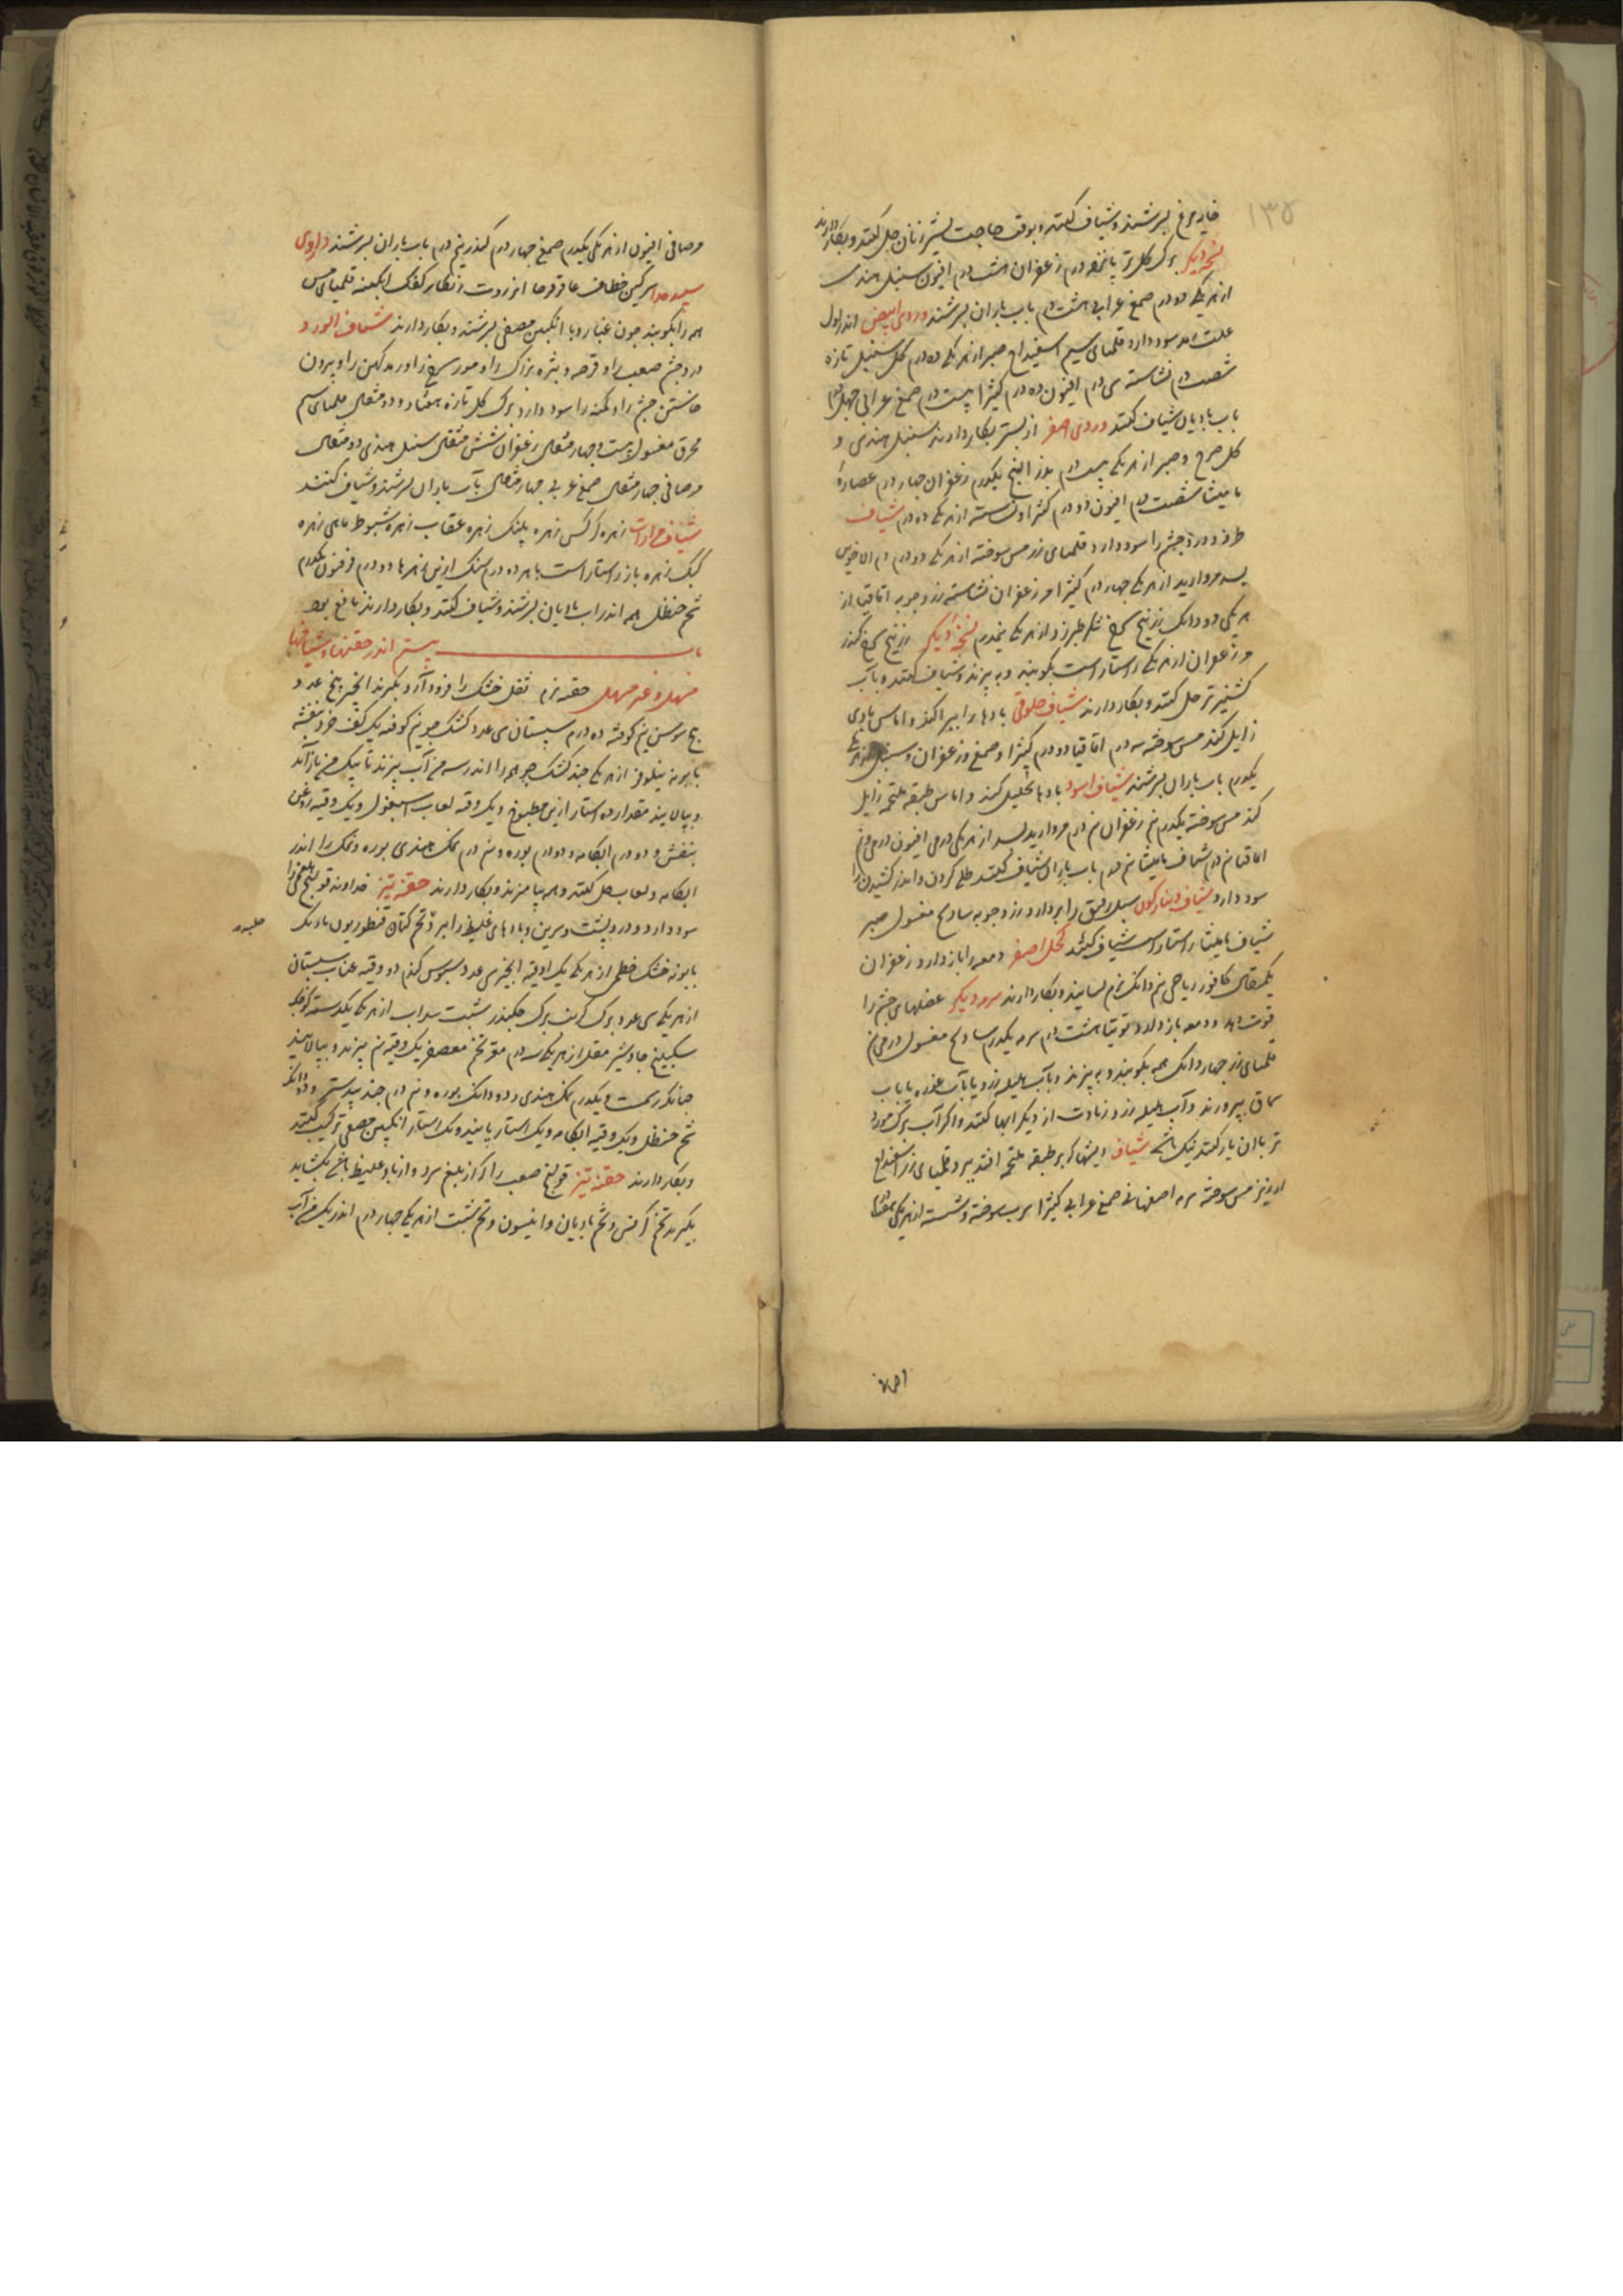 ۱۳۵
خایه مرغ بسرشند و شیاف کنند و بوقت حاجت بشیر زنان حل کنند و بکار دارند
نسخه دیکر برک کل تر پانزده درم زعفران هشت درم افیون سنبل هندی
از هر یکی دو درم صمغ عرابی هشت درم باب باران بسرشند وردی ابیض اندر اول
علت رمد سود دارد قلمیای سیم اسفیداج صبر از هر یکی ده درم کل سنبل تازه
شصت درم نشاسته سی درم افیون ده درم کتیرا بیست درم صمغ عرابی چهل درم
باب بادیان شیاف کنند وردی اصفر از بستر بکار دارند سنبل هندی و
کل سرخ و صبر از هر یکی بیست درم بزر البنج یکدرم زعفران چهار درم عصاره
مامیثا شصت درم افیون دو درم کتیرا و نشاسته از هر یکی ده درم شیاف
طرفه و درد چشم را سود دارد قلمیای زر مس سوخته از هر یکی دو درم دم الاخوین
بسد مروارید از هر یکی چهار درم کتیرا مر زعفران نشاسته زردچوبه اقاقیا از
هر یکی دو دانک زرنیخ سرخ شکر طبرزد از هر یکی نیمدرم نسخه دیکر زرنیخ سرخ کندر
مر زعفران از هر یکی راستاراست بکوبند و به بیزند و شیاف کنند و بآب
کشنیز تر حل کنند و بکار دارند شیاف خلوقی بادها را بپراکند و اماس بادی
زایل کند مس سوخته سه درم اقاقیا دو درم کتیرا و صمغ و زعفران و سنبل از هر یکی
یکدرم باب باران بسرشند شیاف اسود بادها تحلیل کند و اماس طبقه ملتحمه زایل
کند مس سوخته یکدرم نیم زعفران نیم درم مروارید بسد از هر یکی درمی افیون درمی و نیم
اقاقیا نیم درم شیاف مامیثا نیم درم باب باران شیاف کنند طلی کردن و اندر کشیدن را
سود دارد شیاف دینارکون سبل رقیق را بردارد زردچوبه ساذج مغسول صبر
شیاف مامیثا راستاراست شیاف کنند کحل اصفر دمعه را باز دارد زعفران
یکمثقال کافور ریاحی نیم دانک نرم بسایند و بکار دارند سرمه دیکر عضلهای چشم را
قوت دهد و دمعه باز دارد توتیا هشت درم سرمه یکدرم ساذج مغسول درمی نیم
قلمیای زر چهار دانک همه بکوبند و به بیزند و بآب هلیله زرد یا بآب غوره یا باب
سماق بپرورند و آب هلیله زرد زیادت از دیکر ابها کنند و اکر آب برک مورد
تر باان یار کنند نیک باشد شیاف ریشها که بر طبقه ملتحمه افتد ببرد قلمیای زر اسفیداج
ارزیز مس سوخته سرمه اصفهانی صمغ عرابی کتیرا سرب سوخته و شسته از هر یکی هشت درم

مر صافی افیون از هر یکی یکدرم صمغ چهار درم کندر نیم درم باب باران بسرشند داروی
سپیده سرکین خطاف عاقرقرحا انزروت زنکار کفک ابکینه قلمیا مس
همه را بکوبند چون غبار و با انکبین مصفی بسرشند و بکار دارند شیاف الورد
درد چشم صعب را و قرحه و بثره بزرک را و مورسرخ را و رمد کهن را و بیرون
خاستن چشم را و کمنه را سود دارد برک کل تازه هفتاد و دو مثقال قلمیای سیم
محرق مغسول بیست و چهار مثقال زعفران شش مثقال سنبل هندی دو مثقال
مر صافی چهار مثقال صمغ عربی چهار مثقال بآب باران بسرشند و شیاف کنند
شیاف مرارات زهره کرکس زهره پلنک زهره عقاب زهره شبوط ماهی زهره
کبک زهره باز راستاراست با هر ده درم سنک ازین زهرها دو درم فرفیون یکدرم
شحم حنظل همه اندر اب بادیان بسرشند و شیاف کنند و بکار دارند نافع بود
باب بیستم اندر حقنها و شیافها
مسهل و غیر مسهل حقنه نرم ثقل خشک را فرود آرد بکیرند انجیر پنج عدد
بیخ سوسن نیم کوفته ده درم سپستان سی عدد کشک جو نیم کوفته یک کف خرد بنفشه
بابونه نیلوفر از هر یکی چند کشک جو همه را اندر سه من آب بپزند تا بیک من باز آید
و بپالایند مقدار ده استار ازین مطبوخ و یک وقیه لعاب اسبغول و یک وقیه روغن
بنفش و دو درم ابکامه و دو درم بوره و نیم درم نمک هندی بوره و نمک را اندر
ابکامه و لعاب حل کنند و همه بیامیزند و بکار دارند حقنه تیز خداوند قولنج بلغمی را
سود دارد و درد پشت و سرین و بادهای غلیظ را ببرد تخم کتان قنطوریون باریک
حلبه
بابونه خشک خطمی از هر یکی یک اوقیه انجیر سی عدد سبوس کندم دو وقیه عناب سپستان
از هر یکی سی عدد برک کرنب برک چکندر شبت سداب از هر یکی یکدسته کوچک
سکبینج جاوشیر مقل از هر یکی سه درم مغز تخم معصفر یک وقیه نیم بپزند و بپالایند
چنانکه رسمست و یکدرم نمک هندی و دو دانک بوره و نیم درم جند بیدستر و دو دانک
شحم حنظل و یک وقیه ابکامه و یک استار پانیذ و یک استار انکبین مصفی ترکیب کنند
و بکار دارند حقنه تیز قولنج صعب را که از بلغم سرد و از باد غلیظ باشد بکشاید
بکیرند تخم کرفس و تخم بادیان و انیسون و تخم شبت از هر یکی چهار درم اندر یک من آب